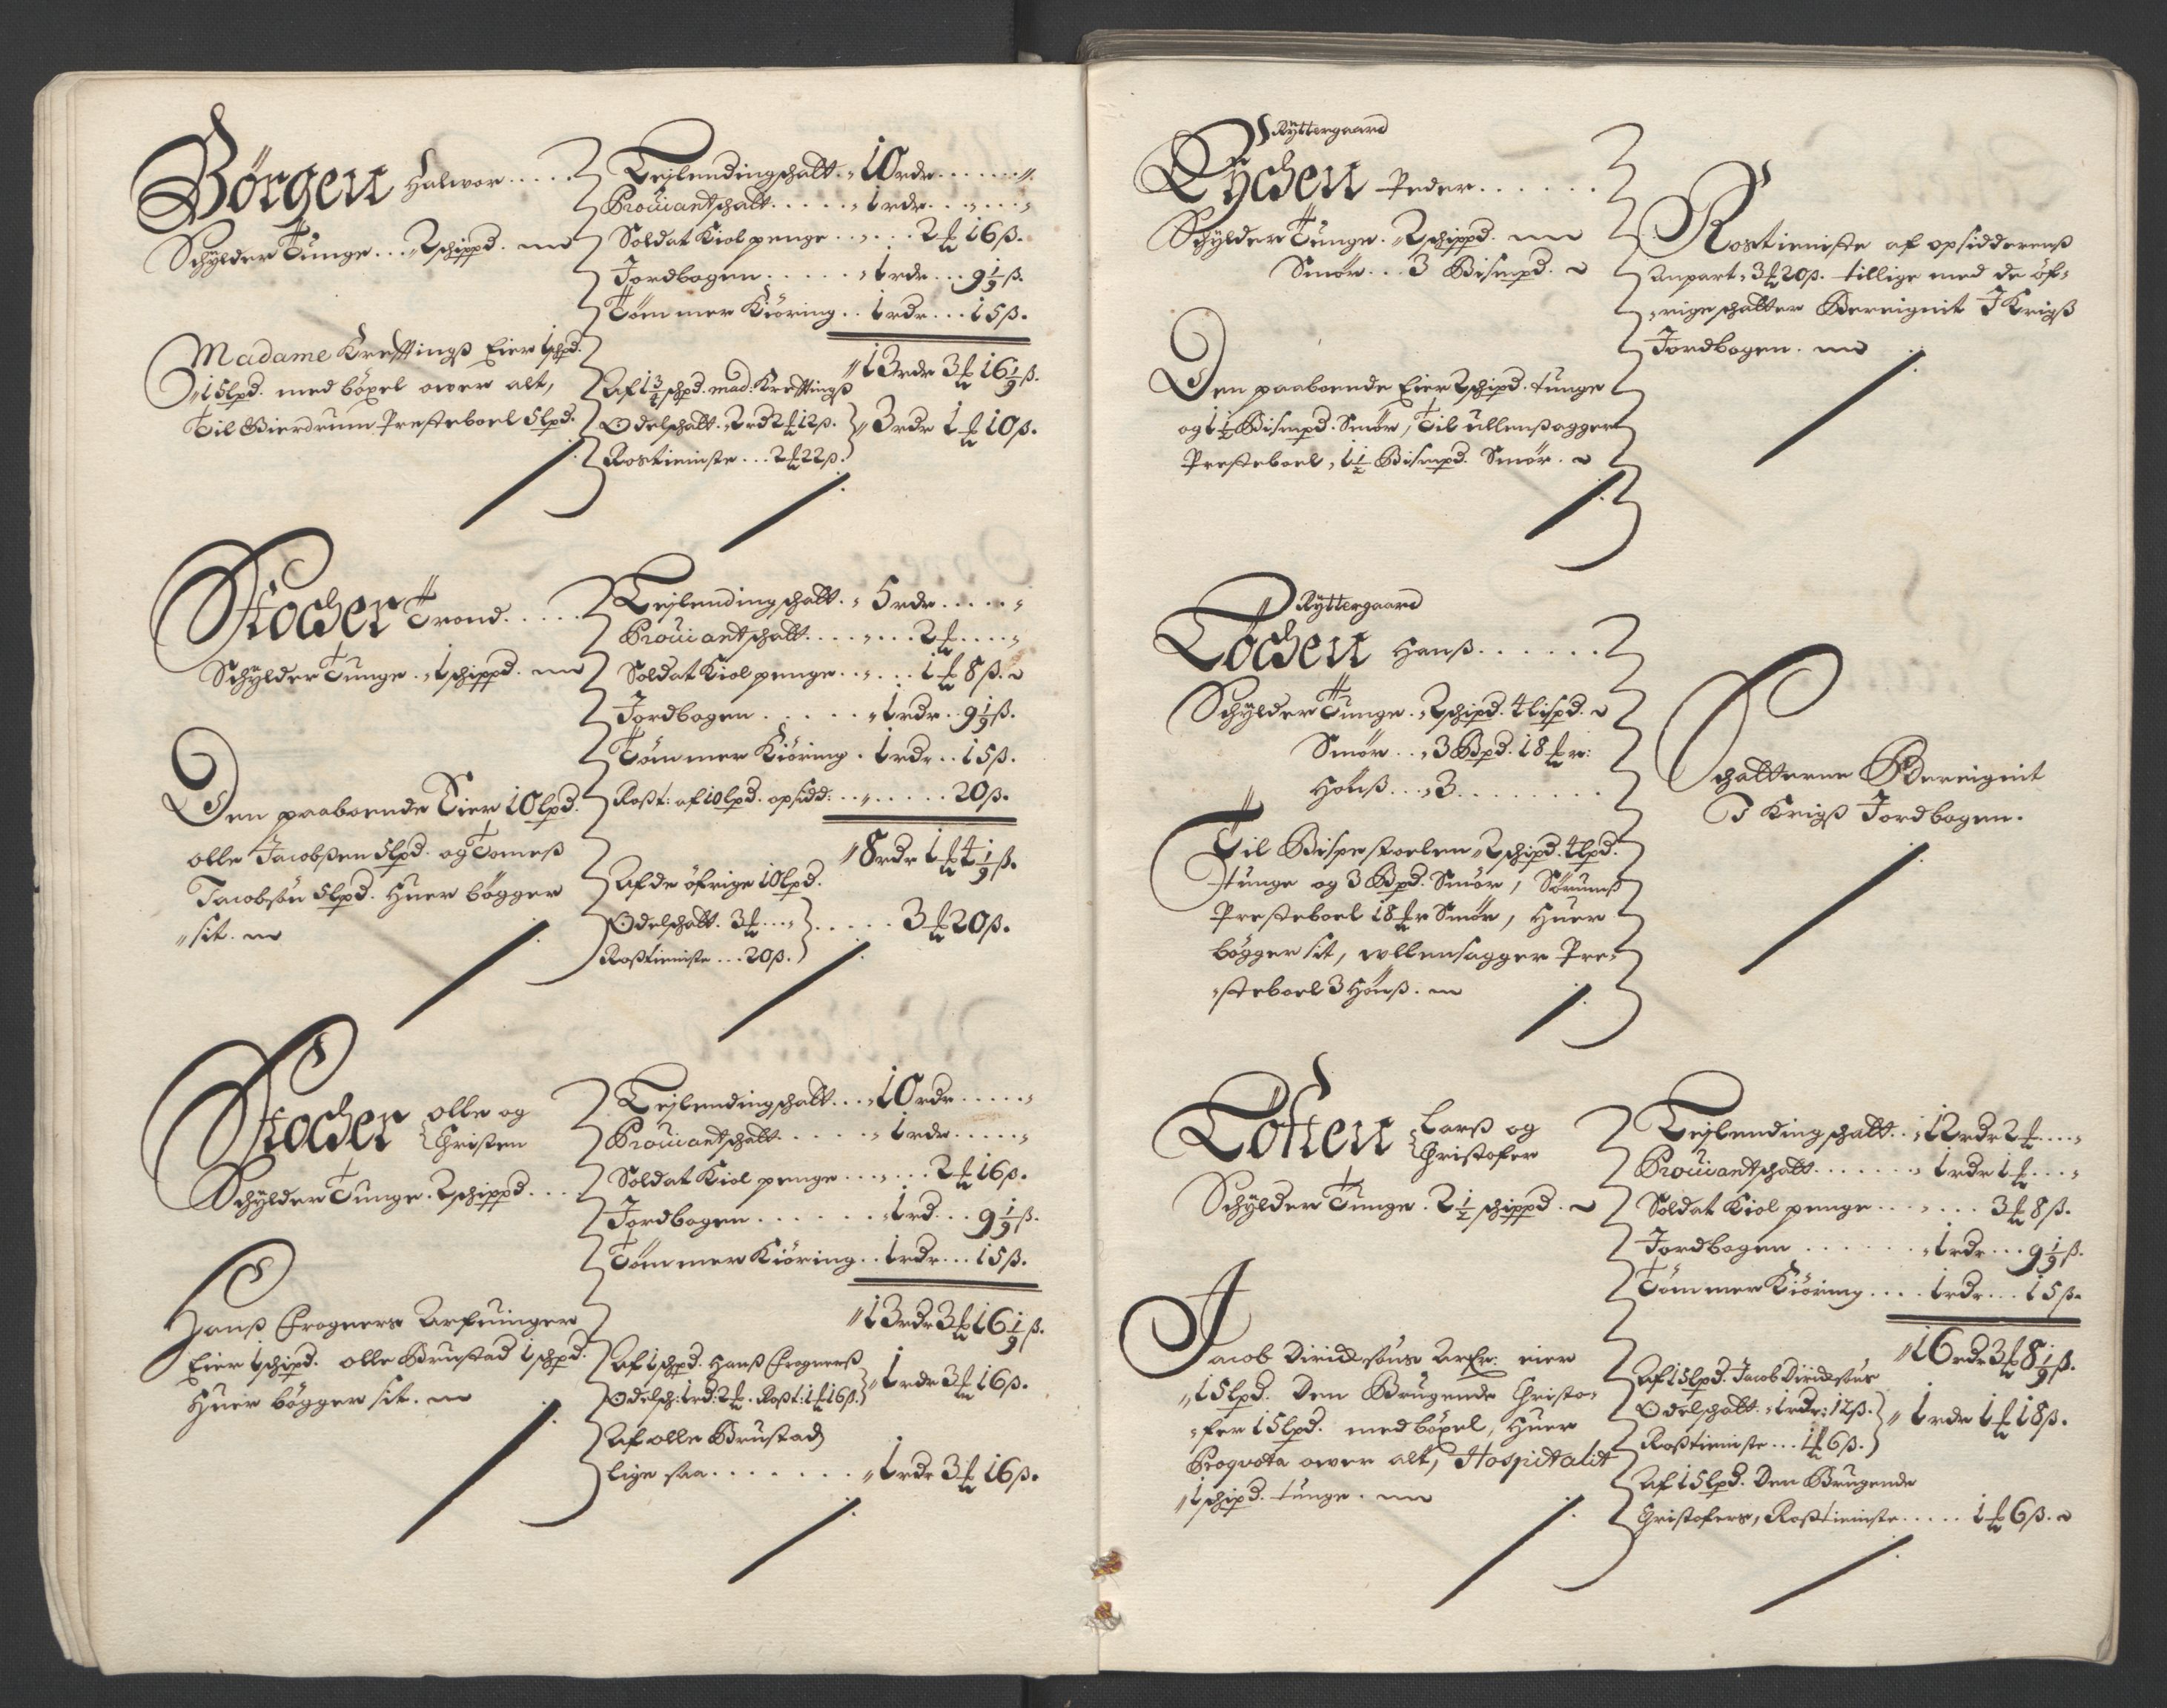 Börgen Halwor.....
Schÿlder Tunge... 2 schippd.
Madame Kreftingß Eier 1 schpd.
15 lpd. med böxel ower alt,
Til Gierdrum Presteboel 5 lpd.
Lejlendingschatt. 10 rdr......
Prouiantschatt..... 1 rdr......
Soldat Kiol penge...... 2 ₰ 16 ß.
Jordbogen..... 1 rdr... 9 1/9 ß.
Tömmer Kiöring.. 1 rdr... 15 ß.
13 rdr 3 ₰ 16 1/9 ß.
Af 1 3/4 schpd. mad. Kreftingß
Odelschatt. 2 rd 2 ₰ 12 ß.
Rostieniste... 2 ₰ 22 ß.
3 rdr 1 ₰ 10 ß.
Stocher Trond.....
Schÿlder Tunge. 1 schippd.
Den paaboende Eier 10 lpd.
olle Jacobßen 5 lpd. og Tomeß
Jacobsön 5 lpd. Huer bögger
sit.
Lejlendingschatt. 5 rdr.....
Prouiantschatt....... 2 ₰.....
Soldat Kiol penge..... 1 ₰ 8 ß.
Jordbogen..... 1 rdr.. 9 1/9 ß.
Tömmer Kiöring. 1 rdr.. 15 ß.
Roßt: af 10 lpd. opsidd:....... 20 ß.
8 rdr 1 ₰ 4 1/9 ß.
Af de öfrige 10 lpd.
Odelschatt. 3 ₰...
Roßtieniste... 20 ß.
..... 3 ₰ 20 ß.
Stocher olle og
Christen
Schÿlder Tunge. 2 schippd...
Hanß Frogners Arfuinger
Eier 1 schipd. olle Brustad 1 schpd.
Huer bögger sit.
Lejlendingschatt... 10 rdr.....
Prouiantschatt..... 1 rdr.....
Soldat Kiol penge...... 2 ₰ 16 ß.
Jordbogen...... 1 rd... 9 1/9 ß.
Tömmer Kiöring.. 1 rdr... 15 ß.
13 rdr 3 ₰ 16 1/9 ß.
Af 1 schpd. Hanß Frognerß
Odelsch: 1 rd: 2 ₰. Roßt: 1 ₰ 16 ß.
1 rdr 3 ₰ 16 ß.
Af olle Brustad
lige saa....... 1 rdr 3 ₰ 16 ß.
Rÿttergaard
Lÿchen Peder......
Schÿlder Tunge. 2 schippd.
Smör... 3 Bismpd.
Den paaboende Eier 2 schipd. tunge
og 1 1/2 Bismpd. Smör, Til ullenßagger
Presteboel, 1 1/2 Bismpd. Smör.
Rostieniste af opsidderenß
Anpart 3 ₰ 20 ß. tillige med de öf-
rige schatter Bereignit J Krigß
Jordbogen.
Rÿttergaard
Löchen Hanß......
Schÿlder Tunge. 2 schipd. 4 lispd.
Smör... 3 Bpd. 18 ₰r:
Hönß... 3........
Til Bispestoelen 2 schipd. 4 lpd.
tunge og 3 Bpd. Smör, Sörumß
Presteboel 18 ₰r Smör, Huer
bögger sit, wllensagger Pre-
steboel 3 Hönß.
Schatterne Bereignit
J Krigß Jordbogen.
Löften Larß og
Christofer
Schÿlder Tunge. 2 1/2 schippd.
Jacob Diridsöns Arfr: eier
15 lpd. Den Brugende Christo-
fer 15 lpd. med böxel, Huer
Proqvota ower alt, Hospitalit
1 schipd. tunge.
Lejlendingschatt.. 12 rdr 2 ₰....
Prouiantschatt....... 1 rdr 1 ₰...
Soldat Kiol penge....... 3 ₰ 8 ß.
Jordbogen....... 1 rdr... 9 1/9 ß.
Tömmer Kiöring.... 1 rdr... 15 ß.
16 rdr 3 ₰ 8 1/9 ß.
Af 15 lpd. Jacob Diridsöns
Odelschatt. 1 rdr: 12 ß.
Roßtieniste... 1 ₰ 6 ß.
1 rdr 1 ₰ 18 ß.
Af 15 lpd. Den Brugende
Christofers, Roßtieniste..... 1 ₰ 6 ß.